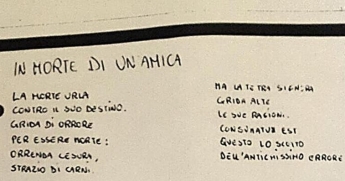 IN MORTE DI UN'AMICA
LA MORTE URLA
CONTRO IL SUO DESTINO.
GRIDA DI ORRORE
PER ESSERE MORTE:
ORRENDA CESURA,
STRAZIO DI CARNI.
MA LA TETRA SIGNORA
GRIDA ALTE
LE SUE RAGIONI.
CONSUMATUM EST
QUESTO LO
DELL'ANTICHISSIMO ERRORE